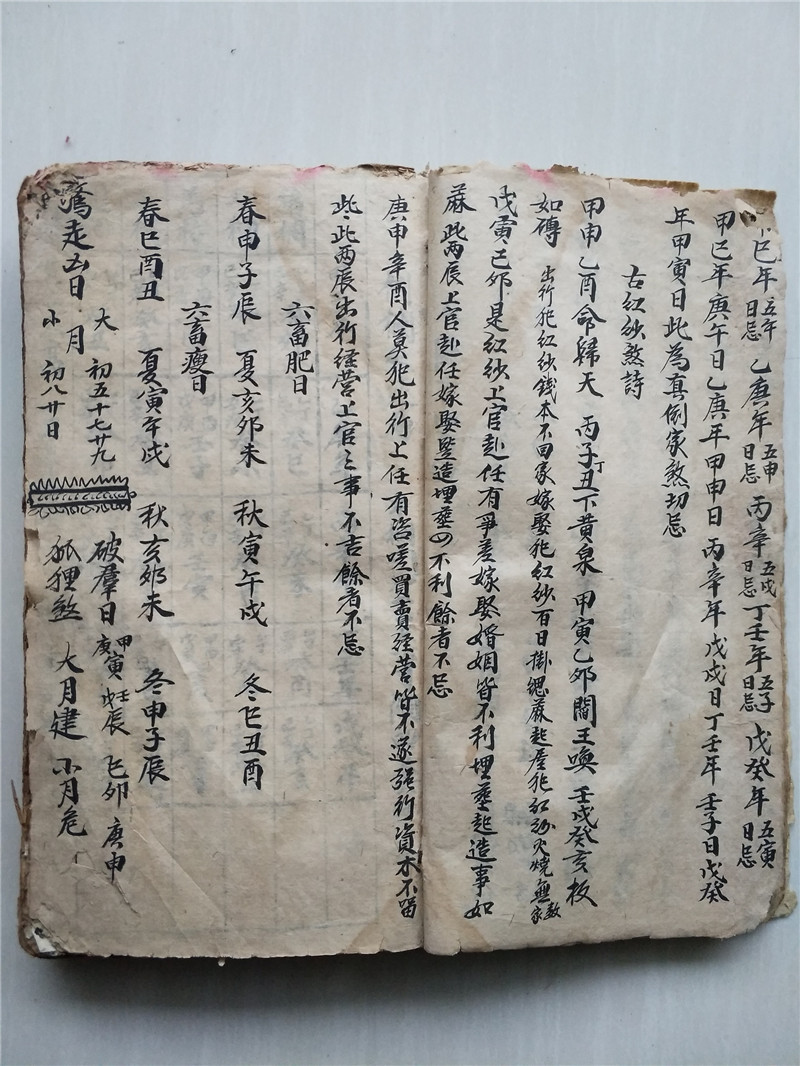 巳年五午日忌 乙庚年五申日忌 丙辛五戌日忌 丁壬年五子日忌 戊癸年五寅日忌
甲巳年庚午日乙庚年甲申日丙辛年戊戌日丁壬年壬子日戊癸
年甲寅日此為真倒家煞切忌
古紅紗煞詩
甲申乙酉命歸天 丙子丁丑下黄泉 甲寅乙卯閻王喚 壬戌癸亥板
如磚 出行犯紅紗錢本不回家嫁娶犯紅紗百日掛缌蔴起屋犯紅紗火燒無数家
戊寅巳卯是紅紗上官赴任有爭差嫁娶婚姻皆不利埋塟起造事如
蔴此两辰上官赴任嫁娶竖造埋塟不利餘者不忌
庚申辛酉人莫犯出行上任有咨嗟買賣經营皆不遂强行資本不留
些此两辰出行經营上官之事不吉餘者不忌
六畜肥日
春申子辰 夏亥卯未 秋寅午戍 冬巳丑酉
六畜瘦日
春巳酉丑 夏寅午戍 秋亥卯未 冬申子辰
驚走凶日 大月初五十七廿九 小月初八廿日
破羣日 甲寅 庚寅 壬辰 戊辰 巳卯 庚申
狐狸煞 大月建 小月危